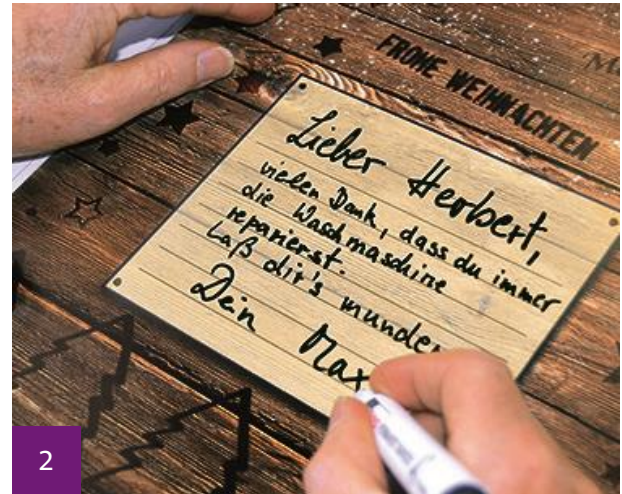 FROHE WEIHNACHTEN
Lieber Herbert,
vielen Dank, dass du immer
die Waschmaschine
reparierst.
Laß dir's munden
Dein Max
2